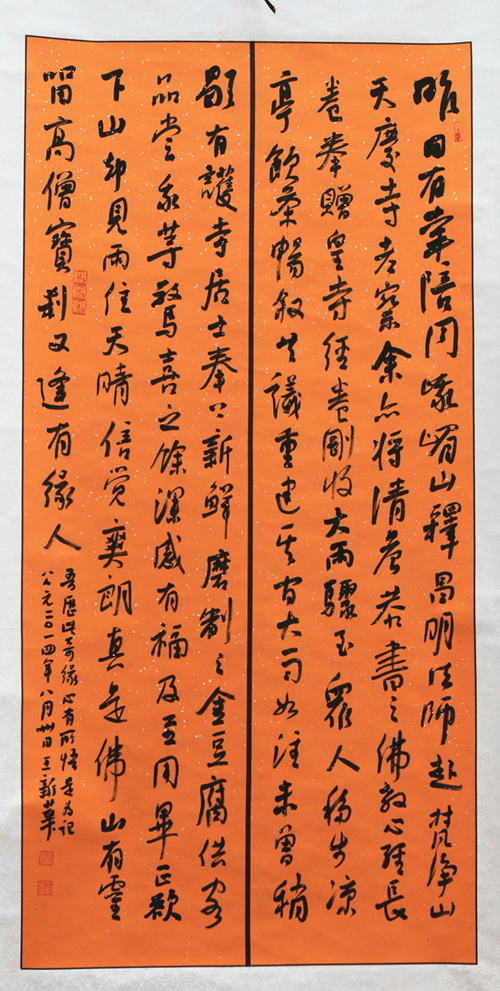 昨日有幸陪同峨嵋山釋昌明法師赴梵净山
天慶寺考察余亦將清岩恭書之佛教心經長
卷奉贈皇寺經卷剛收大雨驟至眾人移步凉
亭飲茶暢叙共議重建其間大雨如注未曾稍
歇有護寺居士奉上新鮮磨制之金豆腐供客
品嘗我等驚喜之餘深感有福及至用畢正欲
下山却見雨住天晴信覺爽朗真是佛山有靈
留高僧寶刹又逢有緣人
吾歷此奇緣心有所悟是為記
公元二〇一四年八月卅日王新華